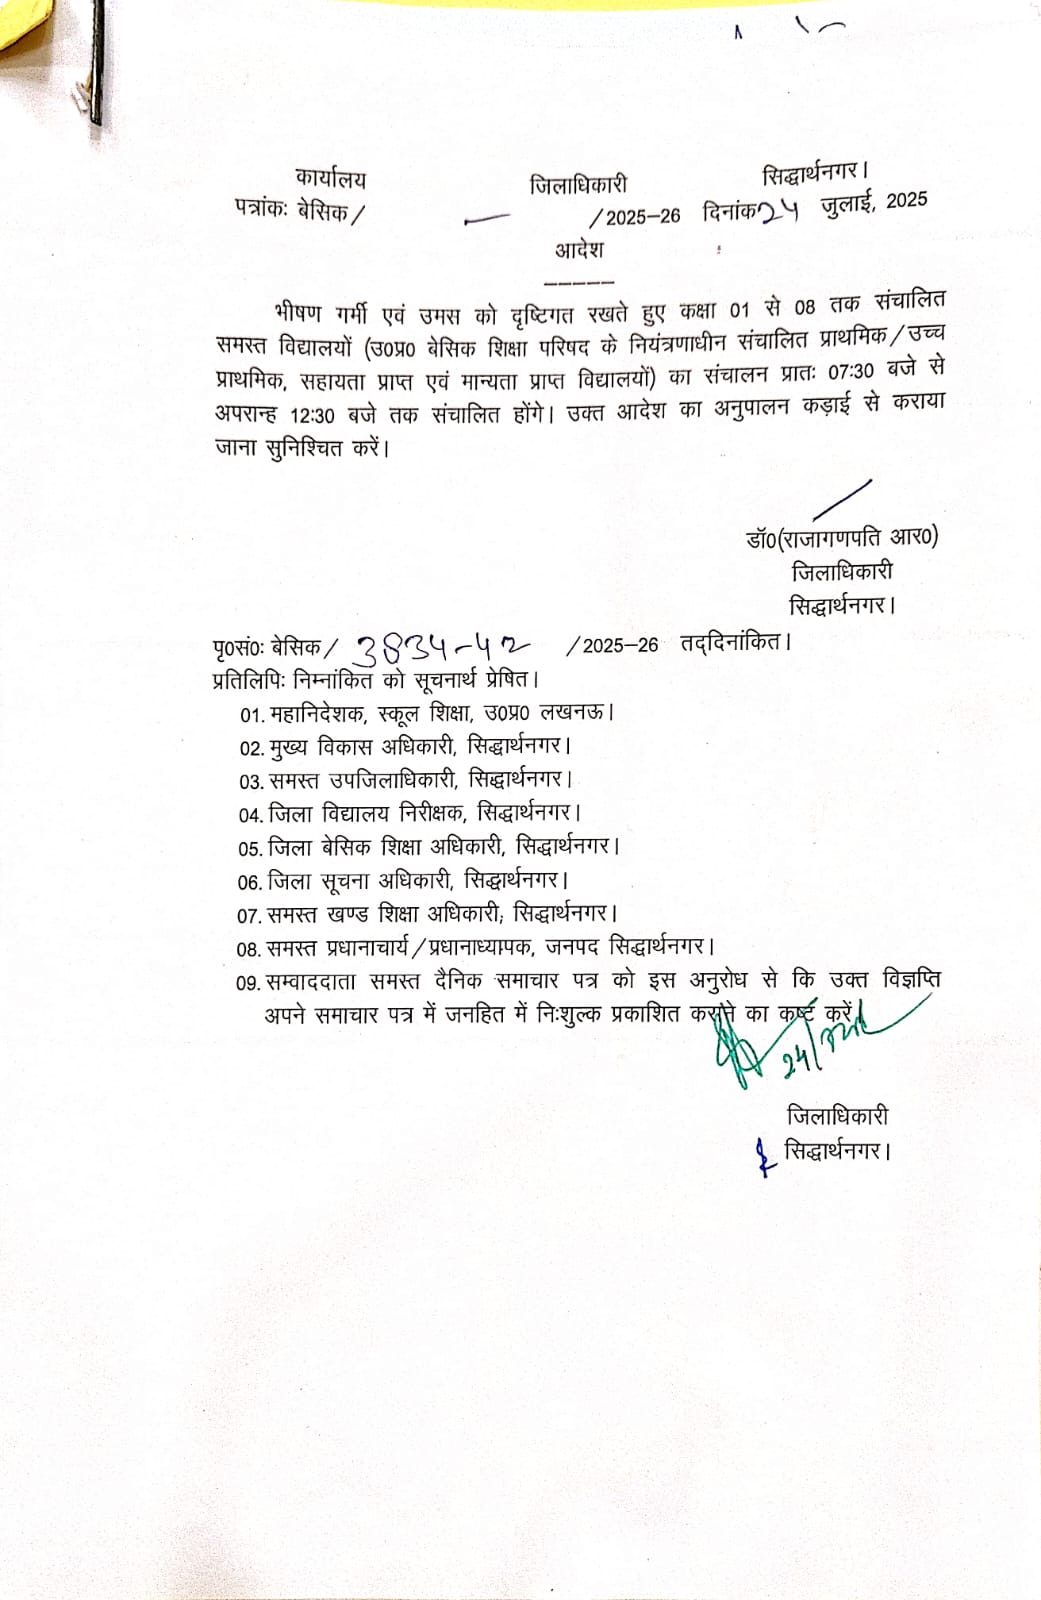 कार्यालय जिलाधिकारी सिद्धार्थनगर।
पत्रांकः बेसिक/ — /2025–26 दिनांक 24 जुलाई, 2025
आदेश
-----
भीषण गर्मी एवं उमस को दृष्टिगत रखते हुए कक्षा 01 से 08 तक संचालित
समस्त विद्यालयों (उ0प्र0 बेसिक शिक्षा परिषद के नियंत्रणाधीन संचालित प्राथमिक/उच्च
प्राथमिक, सहायता प्राप्त एवं मान्यता प्राप्त विद्यालयों) का संचालन प्रातः 07:30 बजे से
अपरान्ह 12:30 बजे तक संचालित होंगे। उक्त आदेश का अनुपालन कड़ाई से कराया
जाना सुनिश्चित करें।
डॉ0(राजागणपति आर0)
जिलाधिकारी
सिद्धार्थनगर।
पृ0सं0ः बेसिक/ 3834-42 /2025–26 तद्दिनांकित।
प्रतिलिपिः निम्नांकित को सूचनार्थ प्रेषित।
01. महानिदेशक, स्कूल शिक्षा, उ0प्र0 लखनऊ।
02. मुख्य विकास अधिकारी, सिद्धार्थनगर।
03. समस्त उपजिलाधिकारी, सिद्धार्थनगर।
04. जिला विद्यालय निरीक्षक, सिद्धार्थनगर।
05. जिला बेसिक शिक्षा अधिकारी, सिद्धार्थनगर।
06. जिला सूचना अधिकारी, सिद्धार्थनगर।
07. समस्त खण्ड शिक्षा अधिकारी, सिद्धार्थनगर।
08. समस्त प्रधानाचार्य/प्रधानाध्यापक, जनपद सिद्धार्थनगर।
09. सम्वाददाता समस्त दैनिक समाचार पत्र को इस अनुरोध से कि उक्त विज्ञप्ति
अपने समाचार पत्र में जनहित में निःशुल्क प्रकाशित कराने का कष्ट करें।
जिलाधिकारी
सिद्धार्थनगर।